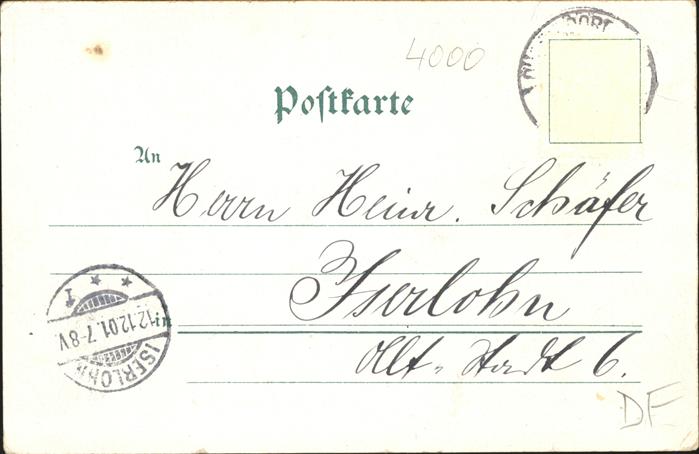 4000
Postkarte
An
Herrn Heinr. Schäfer
Iserlohn
in
Alt-Stadt 6.
ISERLOHN
12.12.01.7-8V.
* * 1
DF